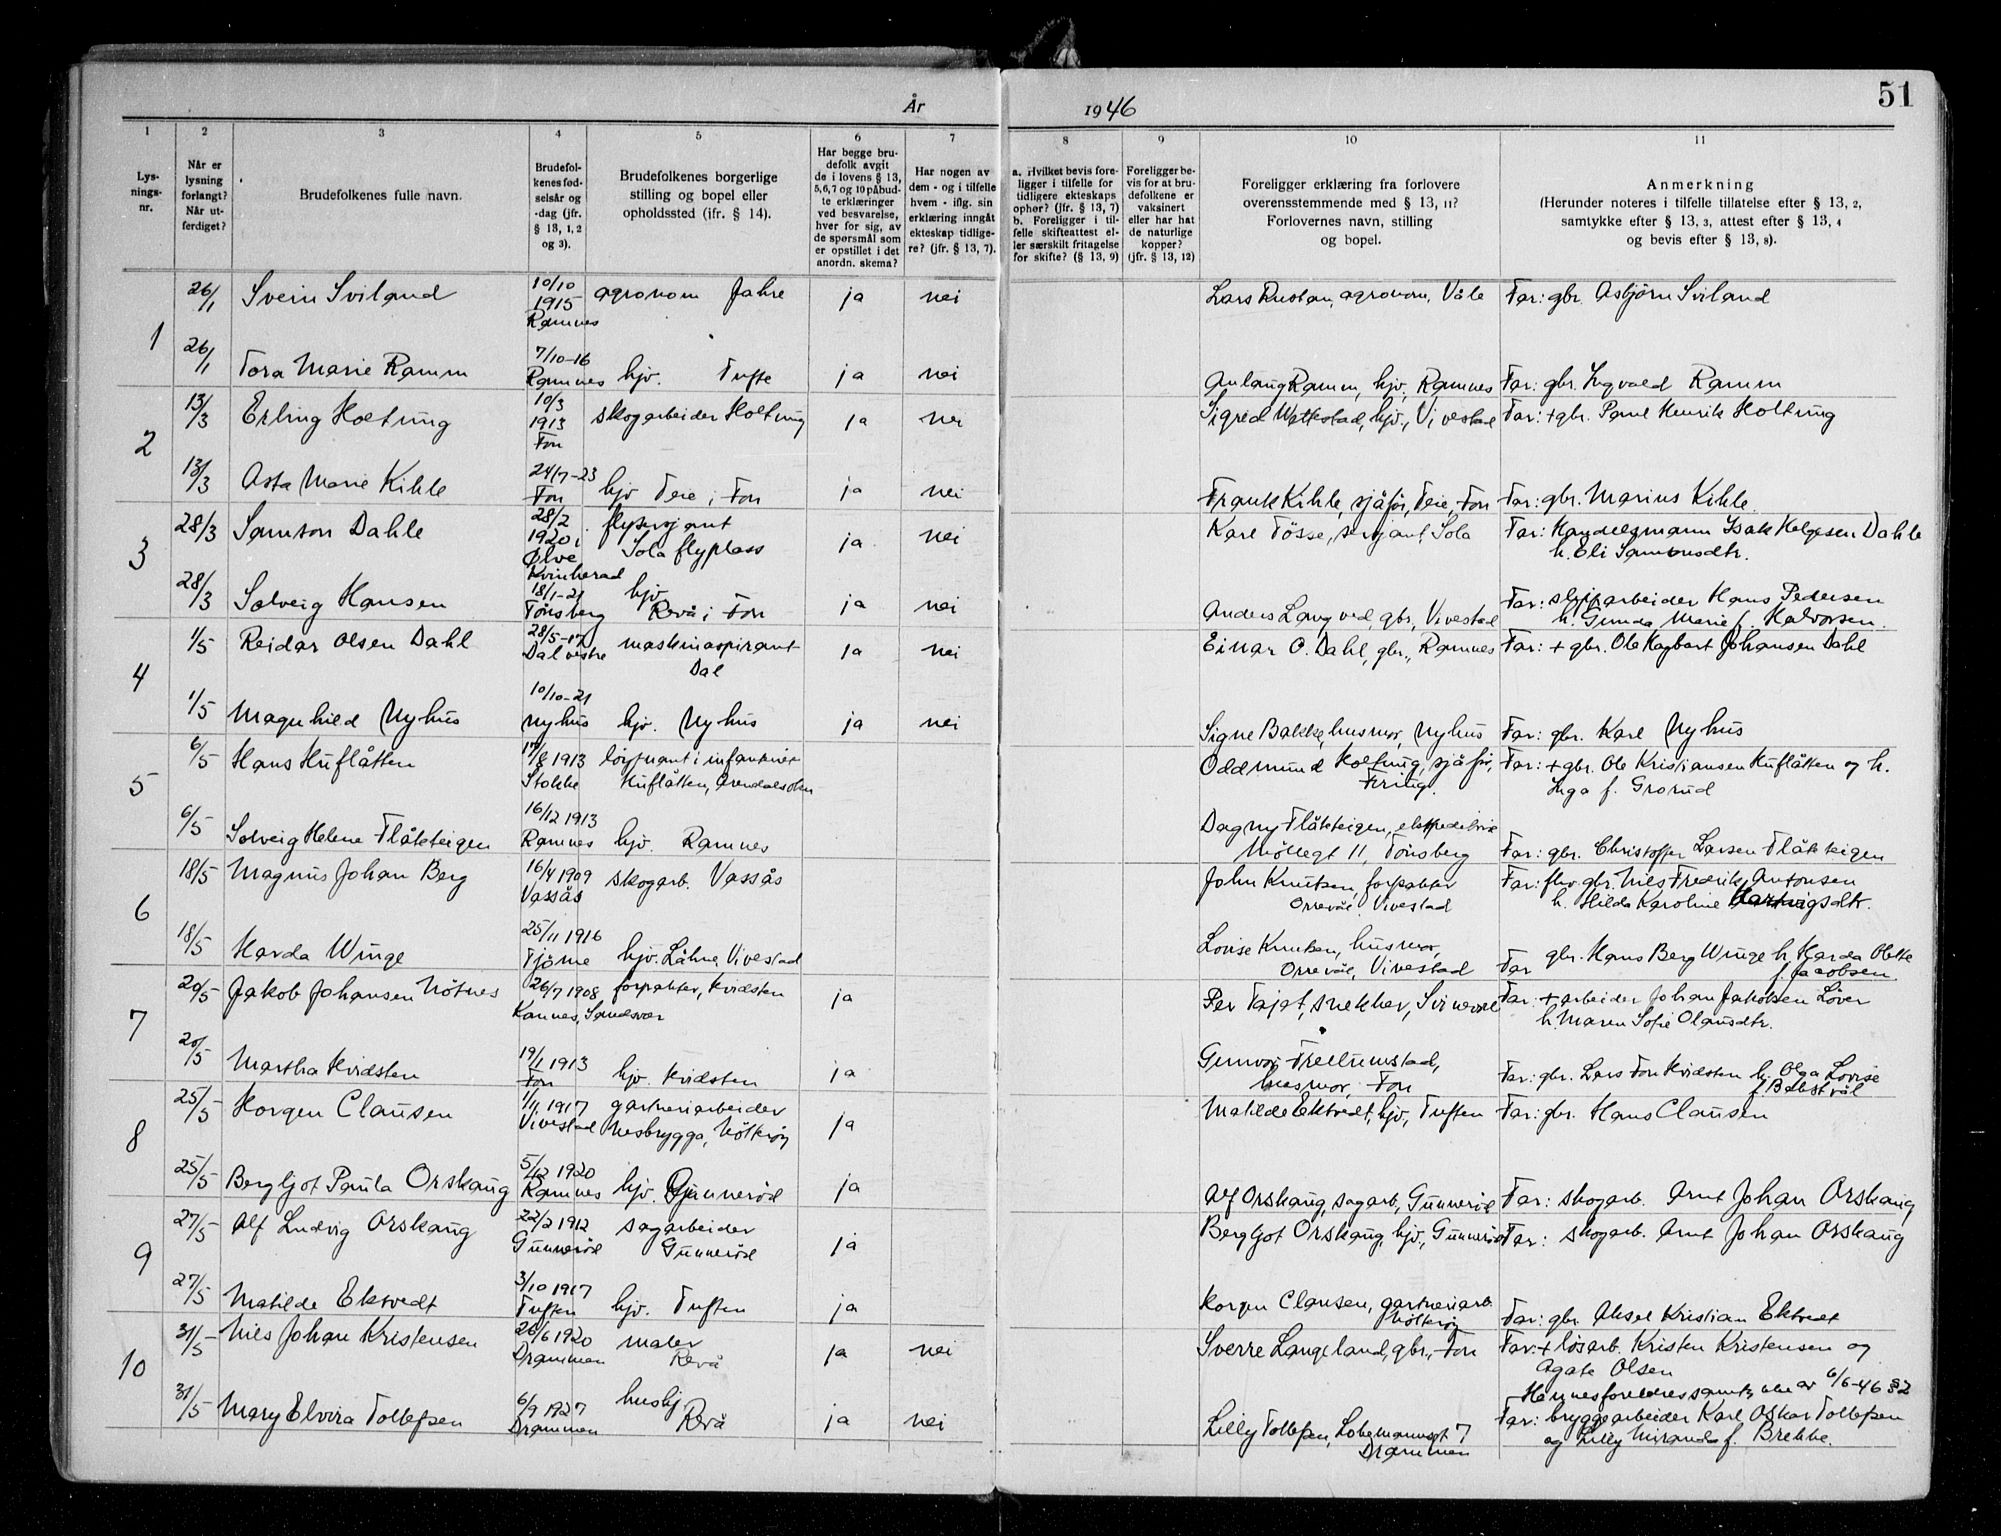 År 1946
51
1 2 3 4 5 6 7 8 9 10 11
Lys-
nings-
nr.
Når er
lysning
forlangt?
Når ut-
ferdiget?
Brudefolkenes fulle navn.
Brudefol-
kenes fød-
selsår og
-dag (jfr.
§ 13, 1, 2
og 3).
Brudefolkenes borgerlige
stilling og bopel eller
opholdssted (ifr. § 14).
Har begge bru-
defolk avgit
de i lovens § 13,
5,6,7 og 10 påbud-
te erklæringer
ved besvarelse,
hver for sig, av
de spørsmål som
er opstillet i det
anordn. skema?
Har nogen av
dem - og i tilfelle
hvem - iflg. sin
erklæring inngåt
ekteskap tidlige-
re? (jfr. § 13, 7).
a. Hvilket bevis fore-
ligger i tilfelle for
tidligere ekteskaps
ophør? (jfr. § 13, 7)
b. Foreligger i til-
felle skifteattest el-
ler særskilt fritagelse
for skifte? (§ 13, 9)
Foreligger be-
vis for at bru-
defolkene er
vaksinert
eller har hat
de naturlige
kopper?
(jfr. § 13, 12)
Foreligger erklæring fra forlovere
overensstemmende med § 13, 11?
Forlovernes navn, stilling
og bopel.
Anmerkning
(Herunder noteres i tilfelle tillatelse efter § 13, 2,
samtykke efter § 13, 3, attest efter § 13, 4
og bevis efter § 13, 8).
1
26/1 Svein Sviland 10/10 1915 Ramnes agronom Jahre ja nei Lars Rustan, agronom, Våle Far: gbr. Asbjørn Sviland
26/1 Tora Marie Ramm 7/10-16 Ramnes hjv. Tufte ja nei Anlaug Ramm, hjv, Ramnes Far: gbr. Ingvald Ramm
2
13/3 Erling Holtung 10/3 1913 Fon skogarbeider Holtung ja nei Sigred Wettestad, hjv., Vivestad Far: + gbr. Paul Henrik Holtung
13/3 Asta Marie Kihle 24/7-23 Fon hjv Teie i Fon ja nei Frank Kihle, sjåfør, Teie, Fon Far: gbr. Marius Kihle.
3
28/3 Samson Dahle 28/2 1920 i Ølve Kvinherad flysersjant Sola flyplass ja nei Karl Tösse, serjant, Sola Far: Handelsmann Isak Helgesen Dahle
h. Eli Samsonsdtr.
28/3 Solveig Hansen 18/1-21 Tönsberg hjv Revå i Fon ja nei Anders Langved, gbr., Vivestad Far: sliparbeider Hans Pedersen
h. Gunda Marie f. Halvorsen.
4
1/5 Reidar Olsen Dahl 28/5-17 Dal vestre maskinaspirant Dal ja nei Einar O. Dahl, gbr., Ramnes Far: + gbr. Ole Hagbart Johansen Dahl
1/5 Magnhild Nyhus 10/10-21 Nyhus hjv. Nyhus ja nei Signe Bakke, husmor, Nyhus Far: gbr. Karl Nyhus
5
6/5 Hans Huflåtten 17/8 1913 Stokke löytnant i infanteriet Huflåtten, Arendalsolsen Oddmund Holtung, sjåför, Far: + gbr. Ole Kristiansen Huflåtten og h.
Inga f. Grorud
6/5 Solveig Helene Flåtteigen 16/12 1913 Ramnes hjv. Ramnes Dagny Flåtteigen, ekspeditrise
Möllegt 11, Tönsberg Far: gbr. Christoffer Larsen Flåtteigen
6
18/5 Magnus Johan Berg 16/4 1909 Vassås skogarb. Vassås John Knutsen, forpakter
Orrevål Vivestad Far: fhv. gbr. Nils Fredrik Antonsen
h. Hilda Karoline Hartvigsdtr.
18/5 Harda Winge 25/11 1916 Tjöme hjv. Låhne, Vivestad Lovise Knutsen, husmor,
Orrevål, Vivestad Far gbr. Hans Berg Winge h. Harda Olette
f. Jacobsen
7
20/5 Jakob Johansen Nötnes 26/7 1908 Kannes, Sandsvær forpakter, Kvidsten ja Per Tajet, snekker, Svinevål Far: + arbeider Johan Jakobsen Löver
h. Maren Sofie Olausdtr.
20/5 Martha Kvidsten 19/1 1913 Fon hjv. Kvidsten ja Gunvor Frellumstad,
husmor, Fon Far: gbr. Lars Fon Kvidsten h. Olga Lovise
8
25/5 Horgen Clausen 1/1 1917 Vivestad gartneriarbeider Nesbrygga, Nötteröy ja Matilde Ektvedt, hjv, Tuften Far: gbr. Hans Clausen
25/5 Bergljot Paula Orskaug 5/12 1920 Ramnes hjv. Gunneröd ja Alf Orskaug, sagarb., Gunneröd Far: skogarb. Arnt Johan Orskaug
9
27/5 Alf Ludvig Orskaug 22/2 1912 Gunneröd sagarbeider Gunneröd ja Bergljot Orskaug, hjv., Gunneröd Far: skogarb. Arnt Johan Orskaug
27/5 Matilde Ektvedt 3/10 1917 Tuften hjv. Tuften ja Horgen Clausen, gartneriarb.
Nötteröy Far: gbr. Aksel Kristian Ektvedt
10
31/5 Nils Johan Kristensen 26/6 1920 Drammen maler Revå ja nei Sverre Langeland, gbr., Fon Far: + lösarb. Kristen Kristensen og
Agate Olsen
Hennes foreldres samt. av 6/6-46 § 2
31/5 Mary Elvira Tollefsen 6/9 1927 Drammen hushj. Revå ja nei Lilly Tollefsen, 7
Drammen Far: bryggearbeider Karl Oskar Tollefsen
og Lilly Miranda f. Brekke.